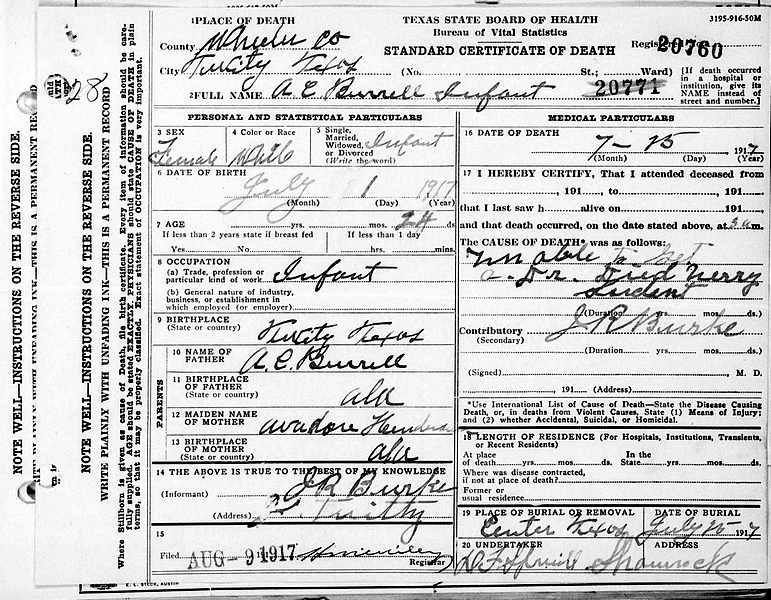 3195-916-50M
1 PLACE OF DEATH
TEXAS STATE BOARD OF HEALTH
3195-916-50M
County Wheeler Co
Bureau of Vital Statistics
STANDARD CERTIFICATE OF DEATH
Registered No. 20760
City Texas (No. St.; Ward)
20771
[If death occurred in a hospital or institution, give its NAME instead of street and number.]
2 FULL NAME A C Burrell Infant
28
PERSONAL AND STATISTICAL PARTICULARS
3 SEX
Female
4 Color or Race
White
5 Single, Married, Widowed, or Divorced (Write the word)
Infant
6 DATE OF BIRTH
July 1 1917
(Month) (Day) (Year)
7 AGE yrs. mos. 24 ds
If less than 2 years state if breast fed
If less than 1 day
Yes No hrs. mins.
8 OCCUPATION
(a) Trade, profession or particular kind of work Infant
(b) General nature of industry, business, or establishment in which employed (or employer)
9 BIRTHPLACE
(State or country)
Texas
PARENTS
10 NAME OF FATHER
A. C. Burrell
11 BIRTHPLACE OF FATHER
(State or country)
ala
12 MAIDEN NAME OF MOTHER
13 BIRTHPLACE OF MOTHER
(State or country)
ala
14 THE ABOVE IS TRUE TO THE BEST OF MY KNOWLEDGE
(Informant) J R Burke
(Address)
15
Filed AUG -9 1917
Registrar
MEDICAL PARTICULARS
16 DATE OF DEATH
7 - 25 1917
(Month) (Day) (Year)
17 I HEREBY CERTIFY, That I attended deceased from
, 191 , to , 191
that I last saw h alive on , 191
and that death occurred, on the date stated above, at m.
The CAUSE OF DEATH* was as follows:
Unable to Get
a Dr. Died Very
Sudent
(Duration) yrs. mos. ds.
J R Burke
Contributory
(Secondary)
(Duration yrs. mos. ds.
(Signed) , M. D.
, 191 (Address)
*Use International List of Cause of Death—State the Disease Causing Death, or, in deaths from Violent Causes, State (1) Means of Injury; and (2) whether Accidental, Suicidal, or Homicidal.
18 LENGTH OF RESIDENCE (For Hospitals, Institutions, Transients, or Recent Residents)
At place of death yrs. mos. ds. In the State yrs. mos. ds.
Where was disease contracted, if not at place of death?
Former or usual residence
19 PLACE OF BURIAL OR REMOVAL
Center Texas
DATE OF BURIAL
July 25 1917
20 UNDERTAKER
ADDRESS
Shamrock
NOTE WELL—INSTRUCTIONS ON THE REVERSE SIDE.
NOTE WELL—INSTRUCTIONS ON THE REVERSE SIDE.
WRITE PLAINLY WITH UNFADING INK—THIS IS A PERMANENT RECORD
Where Stillborn is given as cause of Death, file birth certificate. Every item of information should be carefully supplied. AGE should be stated EXACTLY. PHYSICIANS should state CAUSE OF DEATH in plain terms, so that it may be properly classified. Exact statement of OCCUPATION is very important.
E. L. STECK, AUSTIN